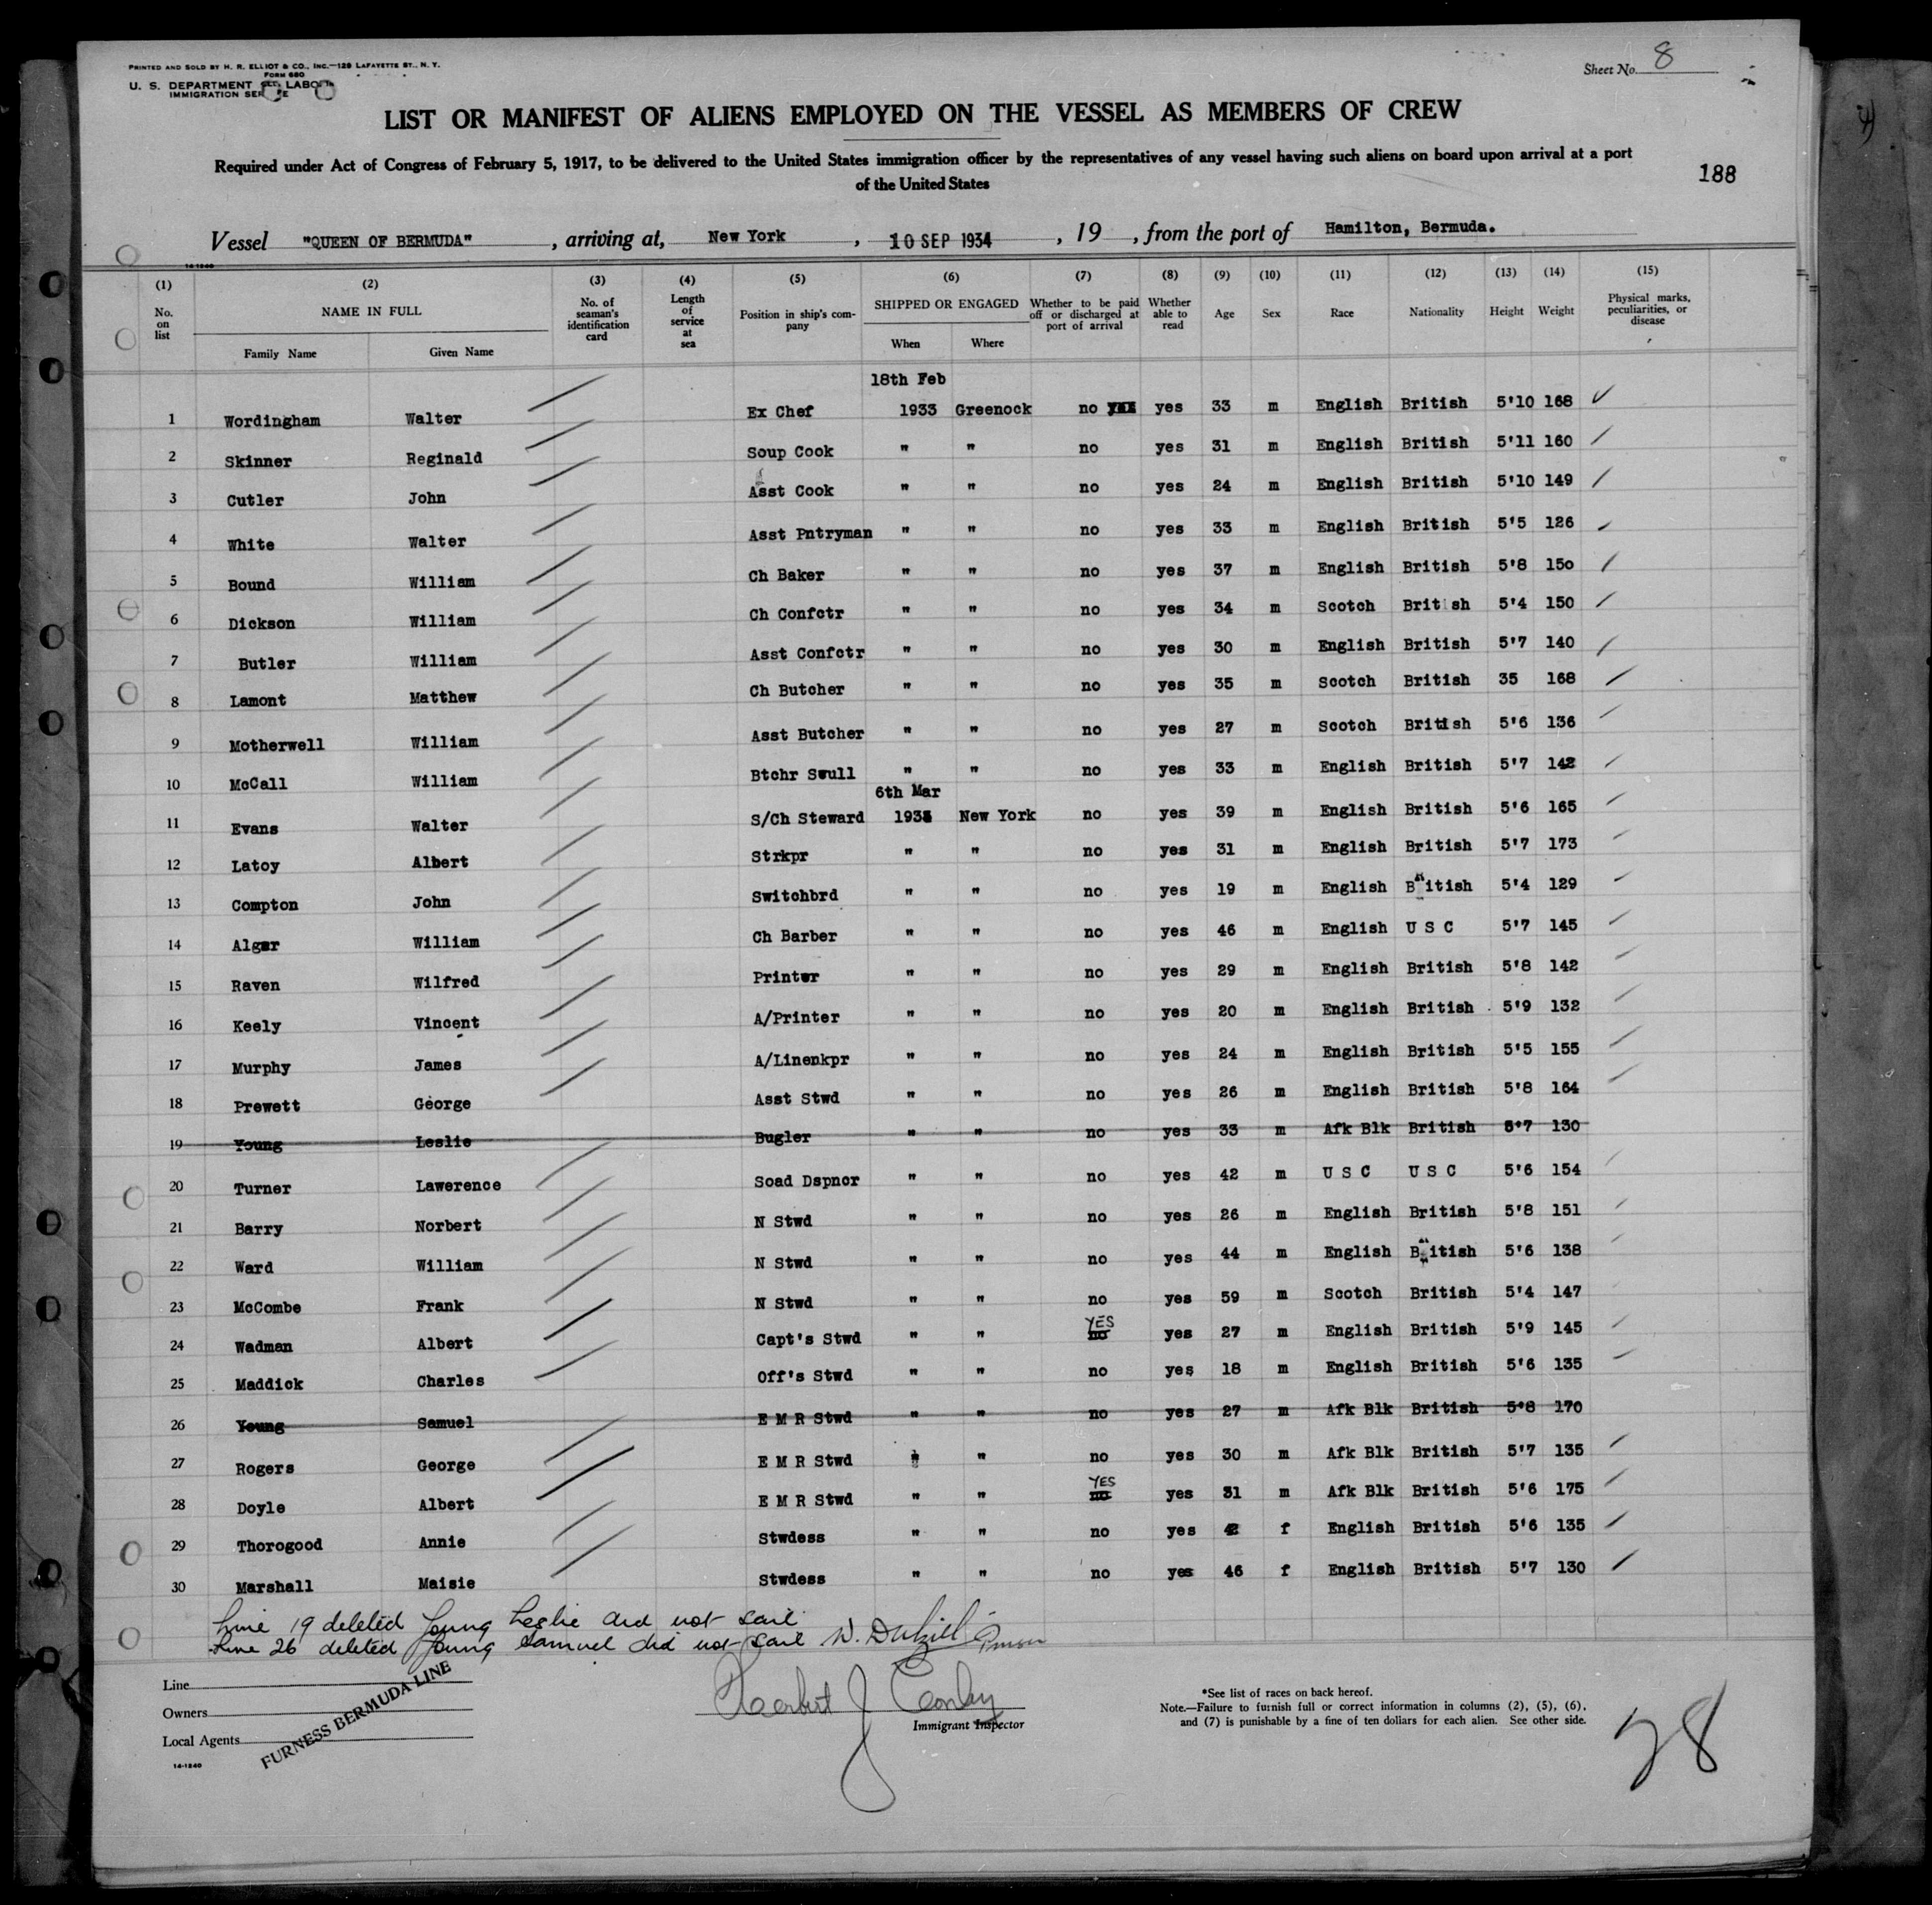 PRINTED AND SOLD BY H. R. ELLIOT & CO., INC.—129 LAFAYETTE ST., N. Y.
FORM 680
U. S. DEPARTMENT LABOR
IMMIGRATION SERVICE
Sheet No. 8
LIST OR MANIFEST OF ALIENS EMPLOYED ON THE VESSEL AS MEMBERS OF CREW
Required under Act of Congress of February 5, 1917, to be delivered to the United States immigration officer by the representatives of any vessel having such aliens on board upon arrival at a port
of the United States
188
Vessel "QUEEN OF BERMUDA" , arriving at, New York , 10 SEP 1934 , 19 , from the port of Hamilton, Bermuda.
14-1240
(1) (2) (3) (4) (5) (6) (7) (8) (9) (10) (11) (12) (13) (14) (15)
No. on list NAME IN FULL Family Name Given Name No. of seaman's identification card Length of service at sea Position in ship's company SHIPPED OR ENGAGED When Where Whether to be paid off or discharged at port of arrival Whether able to read Age Sex Race Nationality Height Weight Physical marks, peculiarities, or disease
18th Feb
1 Wordingham Walter Ex Chef 1933 Greenock no yes yes 33 m English British 5'10 168
2 Skinner Reginald Soup Cook " " no yes 31 m English British 5'11 160
3 Cutler John Asst Cook " " no yes 24 m English British 5'10 149
4 White Walter Asst Pntryman " " no yes 33 m English British 5'5 126
5 Bound William Ch Baker " " no yes 37 m English British 5'8 150
6 Dickson William Ch Confctr " " no yes 34 m Scotch British 5'4 150
7 Butler William Asst Confctr " " no yes 30 m English British 5'7 140
8 Lamont Matthew Ch Butcher " " no yes 35 m Scotch British 35 168
9 Motherwell William Asst Butcher " " no yes 27 m Scotch British 5'6 136
10 McCall William Btchr Scull " " no yes 33 m English British 5'7 142
6th Mar
11 Evans Walter S/Ch Steward 1933 New York no yes 39 m English British 5'6 165
12 Latoy Albert Strkpr " " no yes 31 m English British 5'7 173
13 Compton John Switchbrd " " no yes 19 m English British 5'4 129
14 Alger William Ch Barber " " no yes 46 m English U S C 5'7 145
15 Raven Wilfred Printer " " no yes 29 m English British 5'8 142
16 Keely Vincent A/Printer " " no yes 20 m English British 5'9 132
17 Murphy James A/Linenkpr " " no yes 24 m English British 5'5 155
18 Prewett George Asst Stwd " " no yes 26 m English British 5'8 164
19 Young Leslie Bugler " " no yes 33 m Afk Blk British 5'7 130
20 Turner Lawerence Soad Dspncr " " no yes 42 m U S C U S C 5'6 154
21 Barry Norbert N Stwd " " no yes 26 m English British 5'8 151
22 Ward William N Stwd " " no yes 44 m English British 5'6 138
23 McCombe Frank N Stwd " " no yes 59 m Scotch British 5'4 147
24 Wadman Albert Capt's Stwd " " no YES yes 27 m English British 5'9 145
25 Maddick Charles Off's Stwd " " no yes 18 m English British 5'6 135
26 Young Samuel E M R Stwd " " no yes 27 m Afk Blk British 5'8 170
27 Rogers George E M R Stwd " " no yes 30 m Afk Blk British 5'7 135
28 Doyle Albert E M R Stwd " " no YES yes 31 m Afk Blk British 5'6 175
29 Thorogood Annie Stwdess " " no yes 42 f English British 5'6 135
30 Marshall Maisie Stwdess " " no yes 46 f English British 5'7 130
Line 19 deleted Young Leslie did not sail
Line 26 deleted Young Samuel did not sail W. Purser
Line
Owners
Local Agents
FURNESS BERMUDA LINE
14-1240
Herbert J
Immigrant Inspector
*See list of races on back hereof.
Note.—Failure to furnish full or correct information in columns (2), (5), (6),
and (7) is punishable by a fine of ten dollars for each alien. See other side.
28